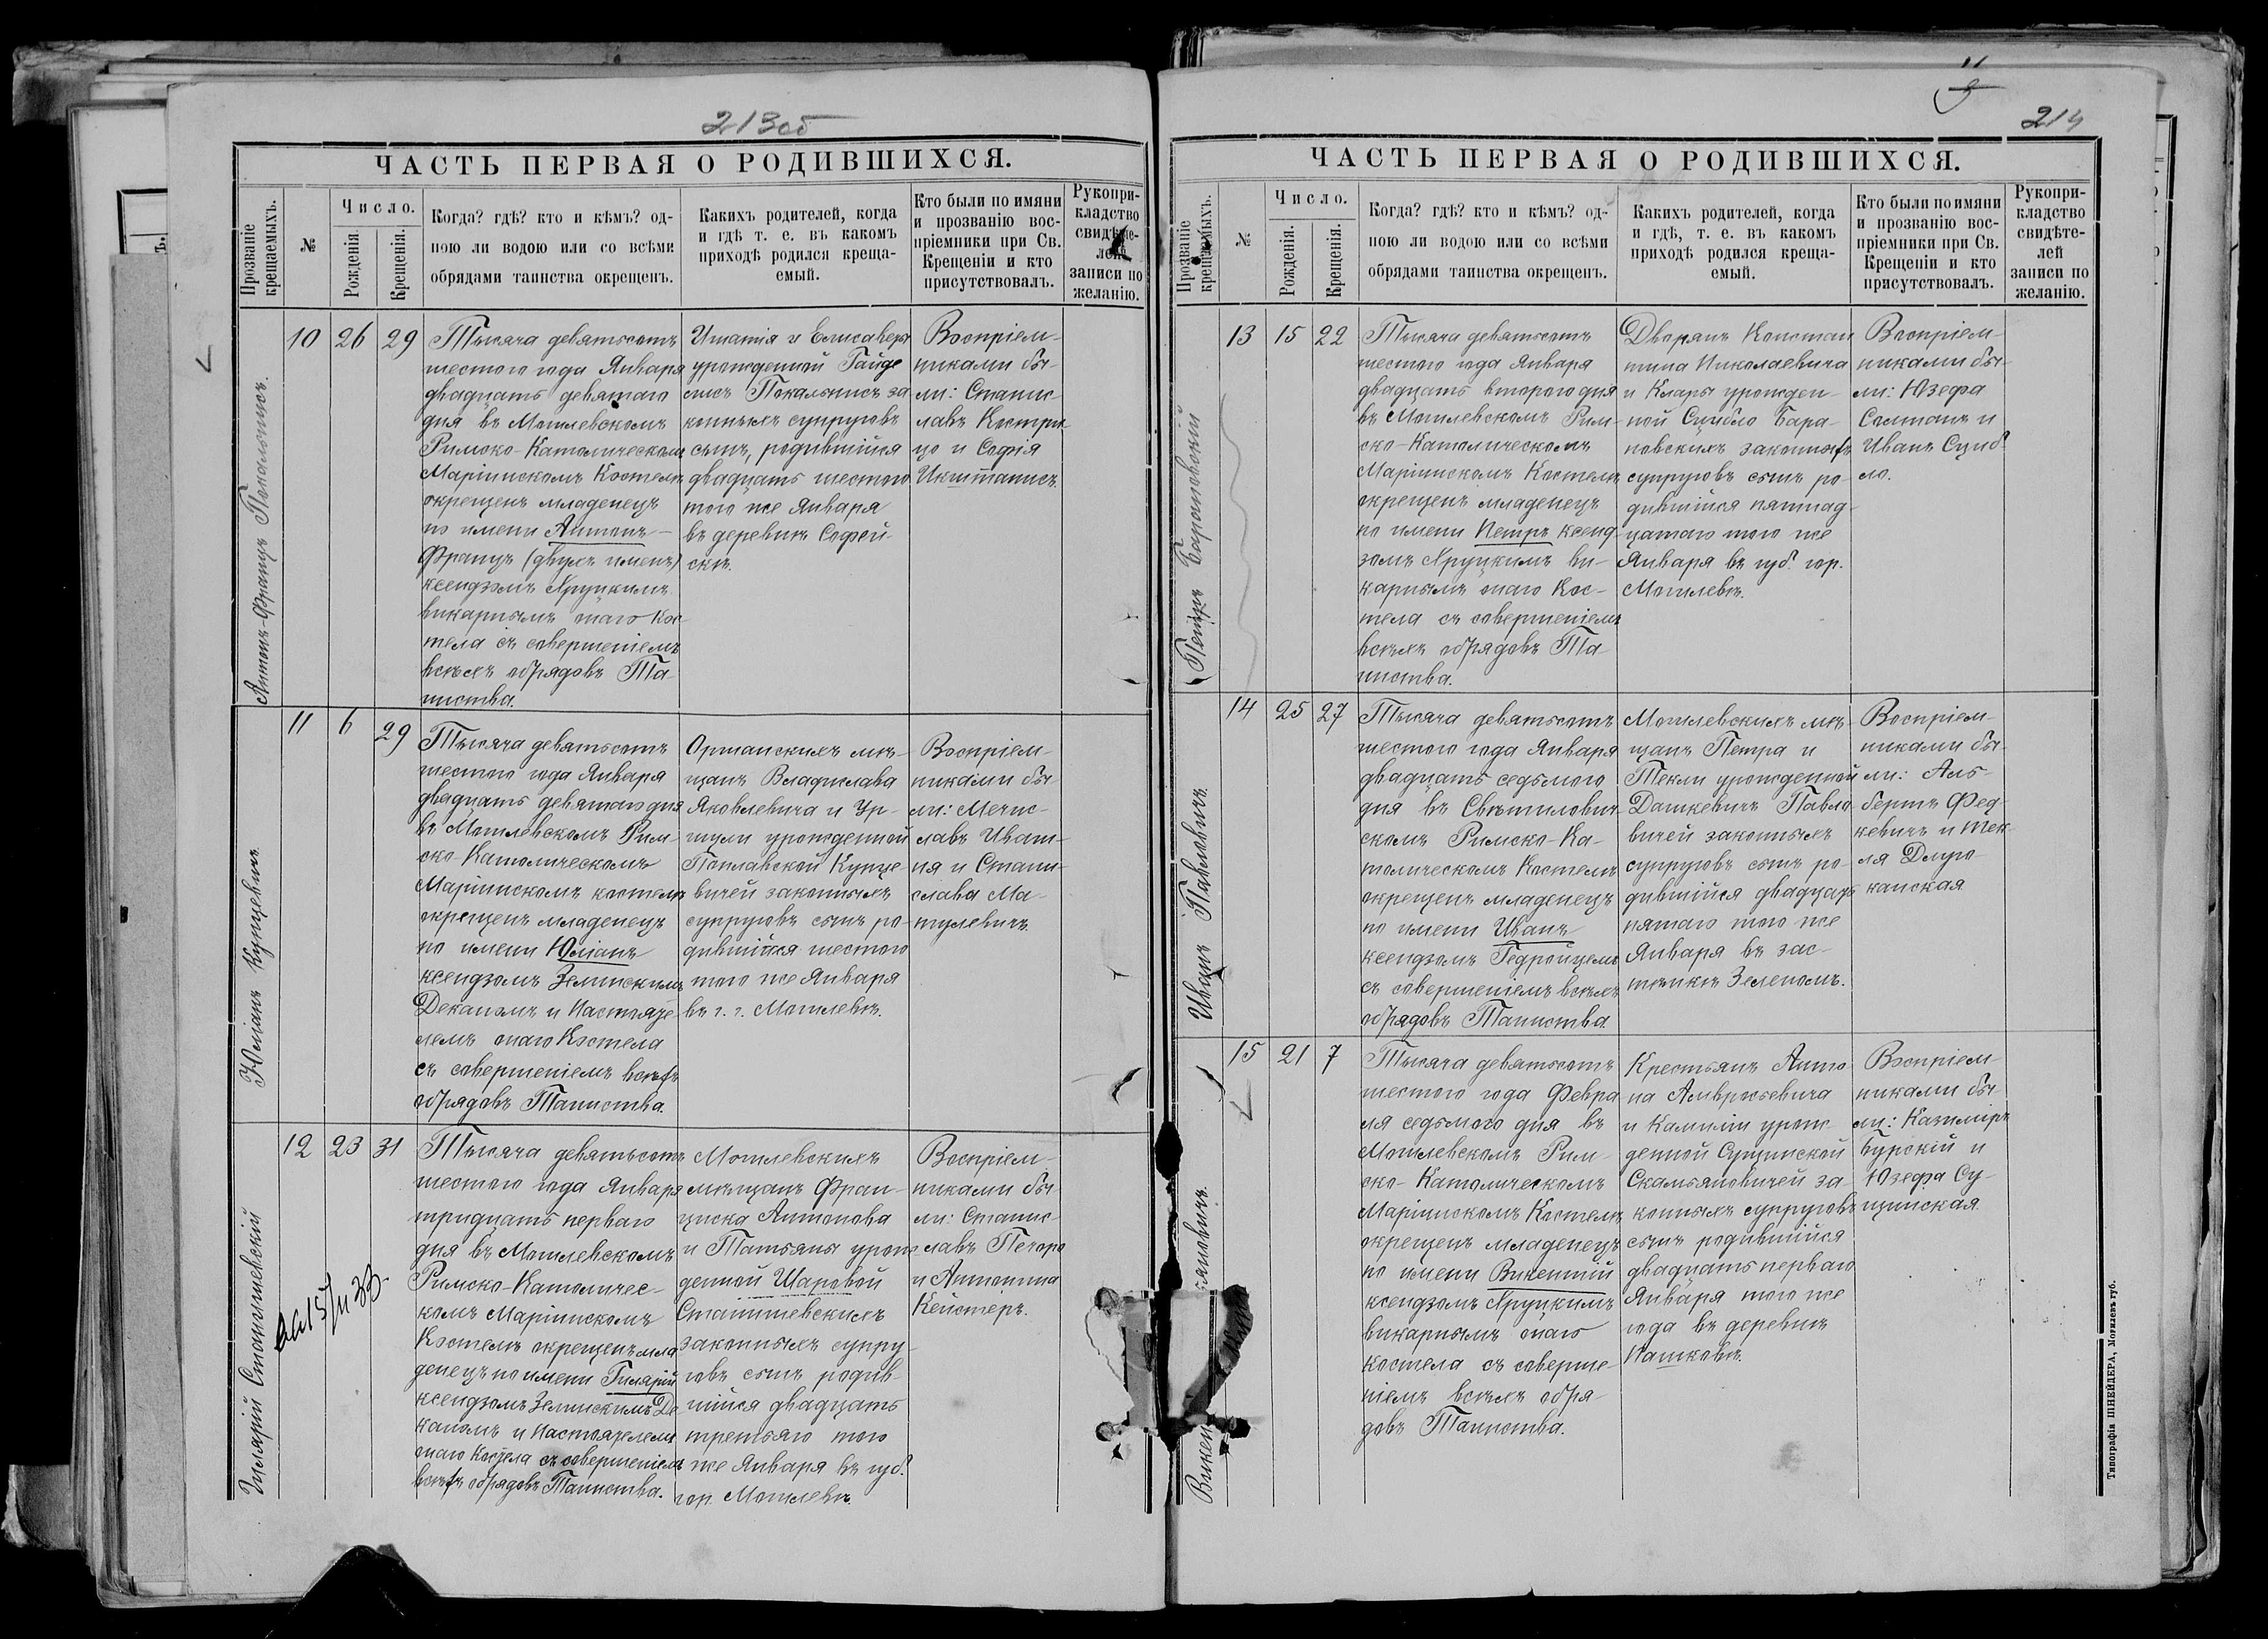 213об
ЧАСТЬ ПЕРВАЯ О РОДИВШИХСЯ.
Прозваніе
крещаемыхъ.
№
Число.
Рожденія.
Крещенія.
Когда? гдѣ? кто и кѣмъ? од-
ною ли водою или со всѣми
обрядами таинства окрещенъ.
Какихъ родителей, когда
и гдѣ т. е. въ какомъ
приходѣ родился креща-
емый.
Кто были по имяни
и прозванію вос-
пріемники при Св.
Крещеніи и кто
присутствовалъ.
Рукопри-
кладство
свидѣте-
лей
записи по
желанію.
Антонъ-Францъ
10
26
29
Тысяча девятьсотъ
шестого года Января
двадцать девятаго
дня въ Могилевскомъ
Римско-Католическомъ
Маріинскомъ Костелѣ
окрещенъ младенецъ
по имени Антонъ-
Францъ (двухъ именъ)
ксендзомъ Хруцкимъ
викарнымъ онаго Кос-
тела съ совершеніемъ
всѣхъ обрядовъ Та-
инства.
Игнатія и Елисаветы
урожденной Гайде
лисъ за
конныхъ супруговъ
сынъ, родившійся
двадцать шестого
того же Января
въ деревнѣ Софей-
скѣ.
Воспріем-
никами бы-
ли: Станис-
лавъ Костри
цо и Софія
Юліанъ Купцевичъ.
11
6
29
Тысяча девятьсотъ
шестого года Января
двадцать девятаго дня
въ Могилевскомъ Рим-
ско-Католическомъ
Маріинскомъ костелѣ
окрещенъ младенецъ
по имени Юліанъ
ксендзомъ Зелинскимъ
Деканомъ и Настояте-
лемъ онаго Костела
съ совершеніемъ всѣхъ
обрядовъ Таинства.
Оршанскихъ мѣ-
щанъ Владислава
Яковлевича и Ур-
шули урожденной
Поплавской Купце-
вичей законныхъ
супруговъ сынъ ро-
дившійся шестого
того же Января
въ г. г. Могилевѣ.
Воспріем-
никами бы-
ли: Мечис-
лавъ Иваш-
ня и Стани-
слава Ма-
тулевичъ.
Гилярій Станишевскій
12
23
31
Тысяча девятьсотъ
шестого года Января
тридцать перваго
дня въ Могилевскомъ
Римско-Католичес-
комъ Маріинскомъ
Костелѣ окрещенъ мла
денецъ по имени Гилярій
ксендзомъ Зелинскимъ Де
каномъ и Настоятелемъ
онаго Костела съ совершеніемъ
всѣхъ обрядовъ Таинства.
Могилевскихъ
мѣщанъ Фран-
циска Антонова
и Татьяны урож
денной Шаровой
Станишевскихъ
законныхъ супру-
говъ сынъ родив-
шійся двадцать
третьяго того
же Января въ губ.
гор. Могилевѣ.
Воспріем-
никами бы-
ли: Станис-
лавъ Печоро
и Антонина
Кейстеръ.
214
ЧАСТЬ ПЕРВАЯ О РОДИВШИХСЯ.
Прозваніе
крещаемыхъ.
№
Число.
Рожденія.
Крещенія.
Когда? гдѣ? кто и кѣмъ? од-
ною ли водою или со всѣми
обрядами таинства окрещенъ.
Какихъ родителей, когда
и гдѣ, т. е. въ какомъ
приходѣ родился креща-
емый.
Кто были по имяни
и прозванію вос-
пріемники при Св.
Крещеніи и кто
присутствовалъ.
Рукопри-
кладство
свидѣте-
лей
записи по
желанію.
Петръ Барановскій
13
15
22
Тысяча девятьсотъ
шестого года Января
двадцать второго дня
въ Могилевскомъ Рим-
ско-Католическомъ
Маріинскомъ Костелѣ
окрещенъ младенецъ
по имени Петръ ксенд-
зомъ Хруцкимъ ви-
карнымъ онаго Кос-
тела съ совершеніемъ
всѣхъ обрядовъ Та-
инства.
Дворянъ Констан
тина Николаевича
и Клары урожден-
ной Сцибло Бара-
новскихъ законныхъ
супруговъ сынъ ро-
дившійся пятнад-
цатаго того же
Января въ губ. гор.
Могилевѣ.
Воспріем-
никами бы-
ли: Юзефа
Солтанъ и
Иванъ Сциб
ло.
Иванъ Павловичъ.
14
25
27
Тысяча девятьсотъ
шестого года Января
двадцать седьмого
дня въ Свѣтилович-
скомъ Римско-Ка-
толическомъ Костелѣ
окрещенъ младенецъ
по имени Иванъ
ксендзомъ Гедройцемъ
съ совершеніемъ всѣхъ
обрядовъ Таинства.
Могилевскихъ мѣ-
щанъ Петра и
Текли урожденной
Дашкевичъ Павло
вичей законныхъ
супруговъ сынъ ро-
дившійся двадцать
пятаго того же
Января въ зас-
тѣнкѣ Зеленомъ.
Воспріем-
никами бы-
ли: Аль-
бертъ Фед-
кевичъ и Тек-
ля Длуго-
канская
15
21
7
Тысяча девятьсотъ
шестого года Февра
ля седьмого дня въ
Могилевскомъ Рим-
ско-Католическомъ
Маріинскомъ Костелѣ
окрещенъ младенецъ
по имени Викентій
ксендзомъ Хруцкимъ
викарнымъ онаго
костела съ соверше-
ніемъ всѣхъ обря-
довъ Таинства.
Крестьянъ Анто
на Амвросьевича
и Камиліи урож-
денной Сущинской
Скамьяновичей за-
конныхъ супруговъ
сынъ родившійся
двадцать перваго
Января того же
года въ деревнѣ
Пашковѣ.
Воспріем-
никами бы-
ли: Казиміръ
Бурскій и
Юзефа Су-
щинская.
Типографія ШНЕЙДЕРА, Могилевъ губ.